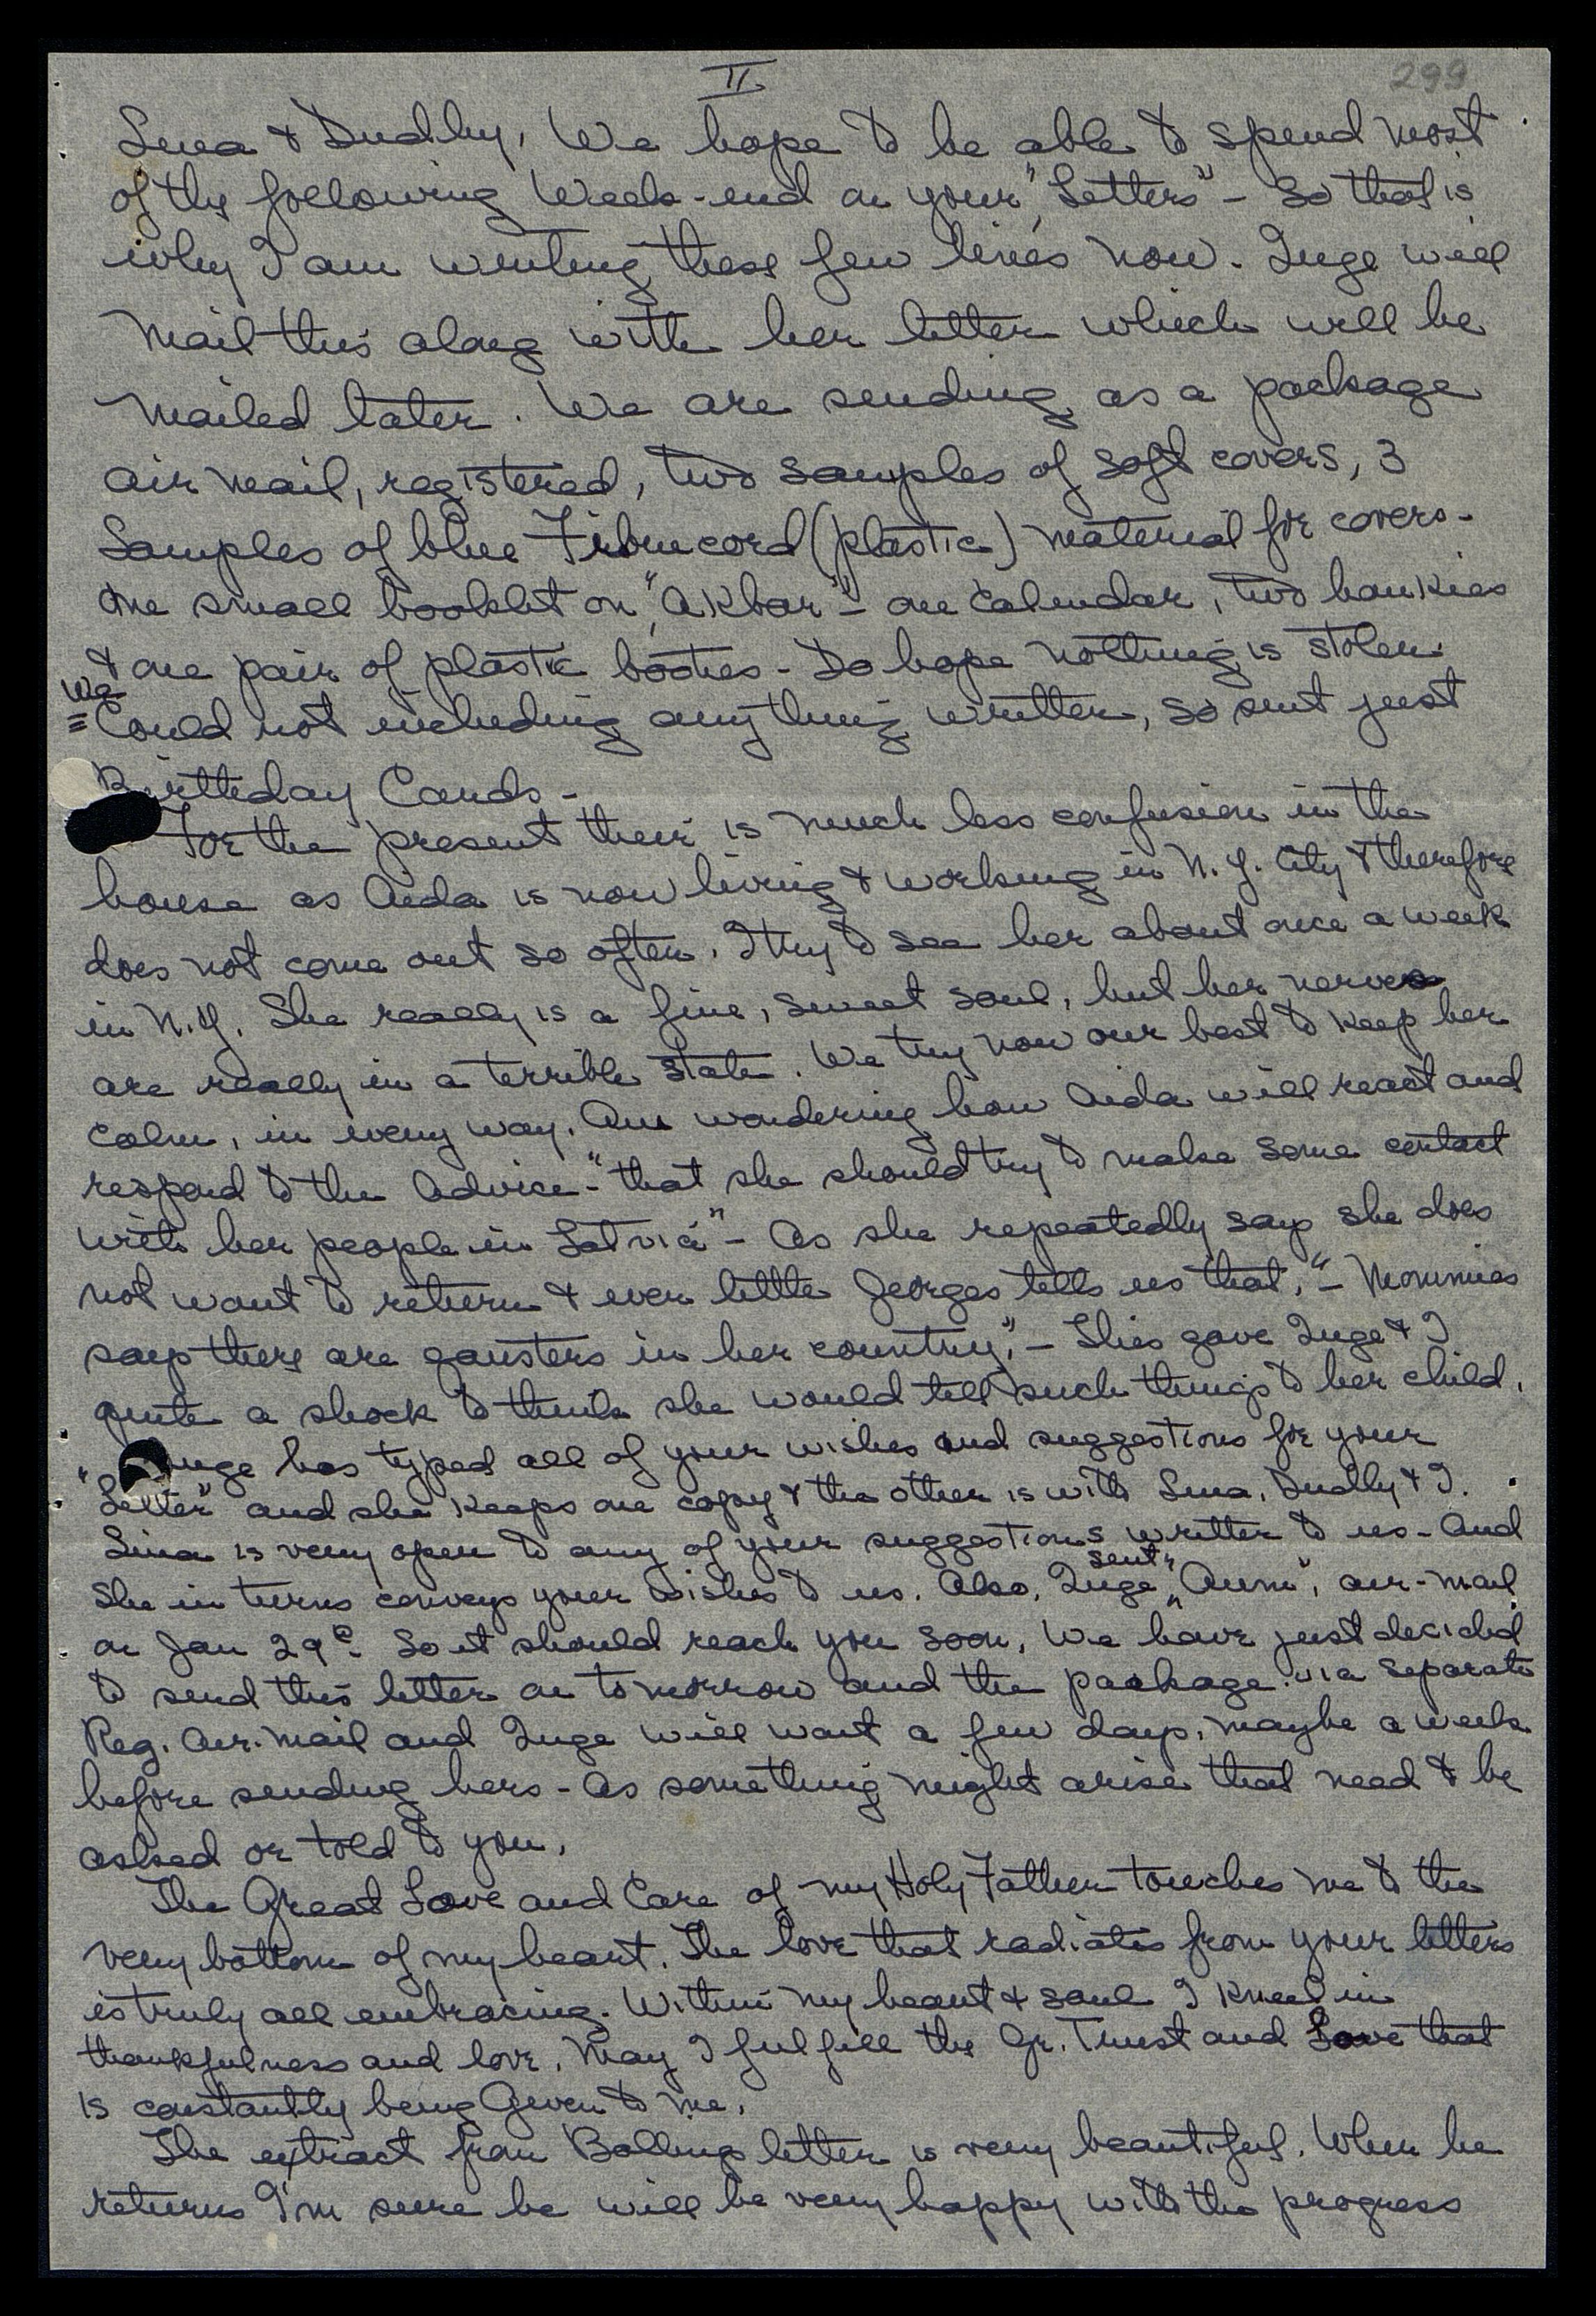 II
299
Sina & Dudley, We hope to be able to spend most
of the following Week-end on your "Letters" - So that is
why I am writing these few lines now. Inge will
mail this along with her letter which will be
mailed later. We are sending as a package
air mail, registered, two samples of soft covers, 3
Samples of blue (plastic) material for covers -
one small booklet on "Akbar" - one Calendar, two hankies
& one pair of plastic booties - Do hope nothing is stolen.
We
Could not including anything written, so sent just
Birthday Cards -
For the present their is much less confusion in the
house as Aida is now living & working in N.Y. City & therefore
does not come out so often. I try to see her about once a week
in N.Y. She really is a fine, sweet soul, but her nerves
are really in a terrible state. We try now our best to keep her
calm, in every way. Am wondering how Aida will react and
respond to the Advice - "that she should try to make some contact
with her people in Latvia" - As she repeatedly says she does
not want to return & even little Georges tells us that, "- Mommies
says there are gansters in her country," - This gave Inge & I
quite a shock to think she would tell such things to her child.
Inge has typed all of your wishes and suggestions for your
"Letter" and she keeps one copy & the other is with Sina, Dudly & I.
Sina is very open to any of your suggestions written to us - And
sent
She in turns conveys your wishes to us. Also, Inge "Aum", air-mail
on Jan 29 So it should reach you soon. We have just decided
to send this letter on tomorrow and the package via separate
Reg. Air. Mail and Inge will wait a few days, maybe a week
before sending hers - As something might arise that need to be
asked or told to you.
The Great Love and Care of my Holy Father touches me to the
very bottom of my heart. The love that radiates from your letters
is truly all embracing. Within my heart & soul I kneel in
thankfulness and love. May I fulfill the Gr. Trust and Love that
is constantly being Given to me.
The extract from Bollings letter is very beautiful. When he
returns I'm sure he will be very happy with the progress